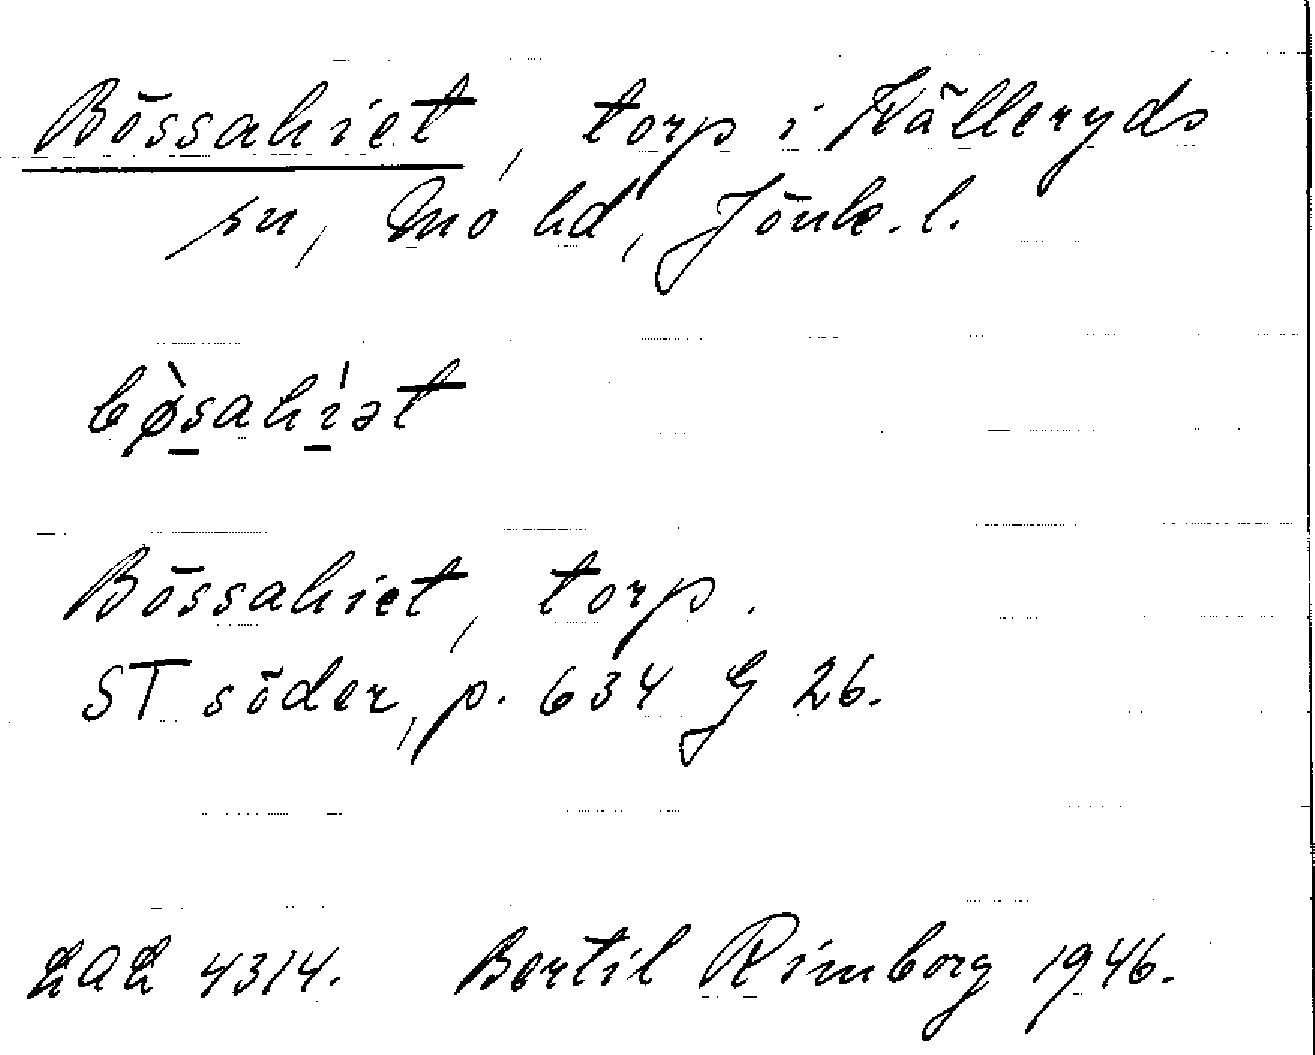 Bössahiet, torp i Källeryds
sn, Mo hd, Jönk. l.
bø̀sahı̍ət
Bössahiet, torp.
ST söder, p. 634 G 26.
LAL 4314. Bertil Rimborg 1946.